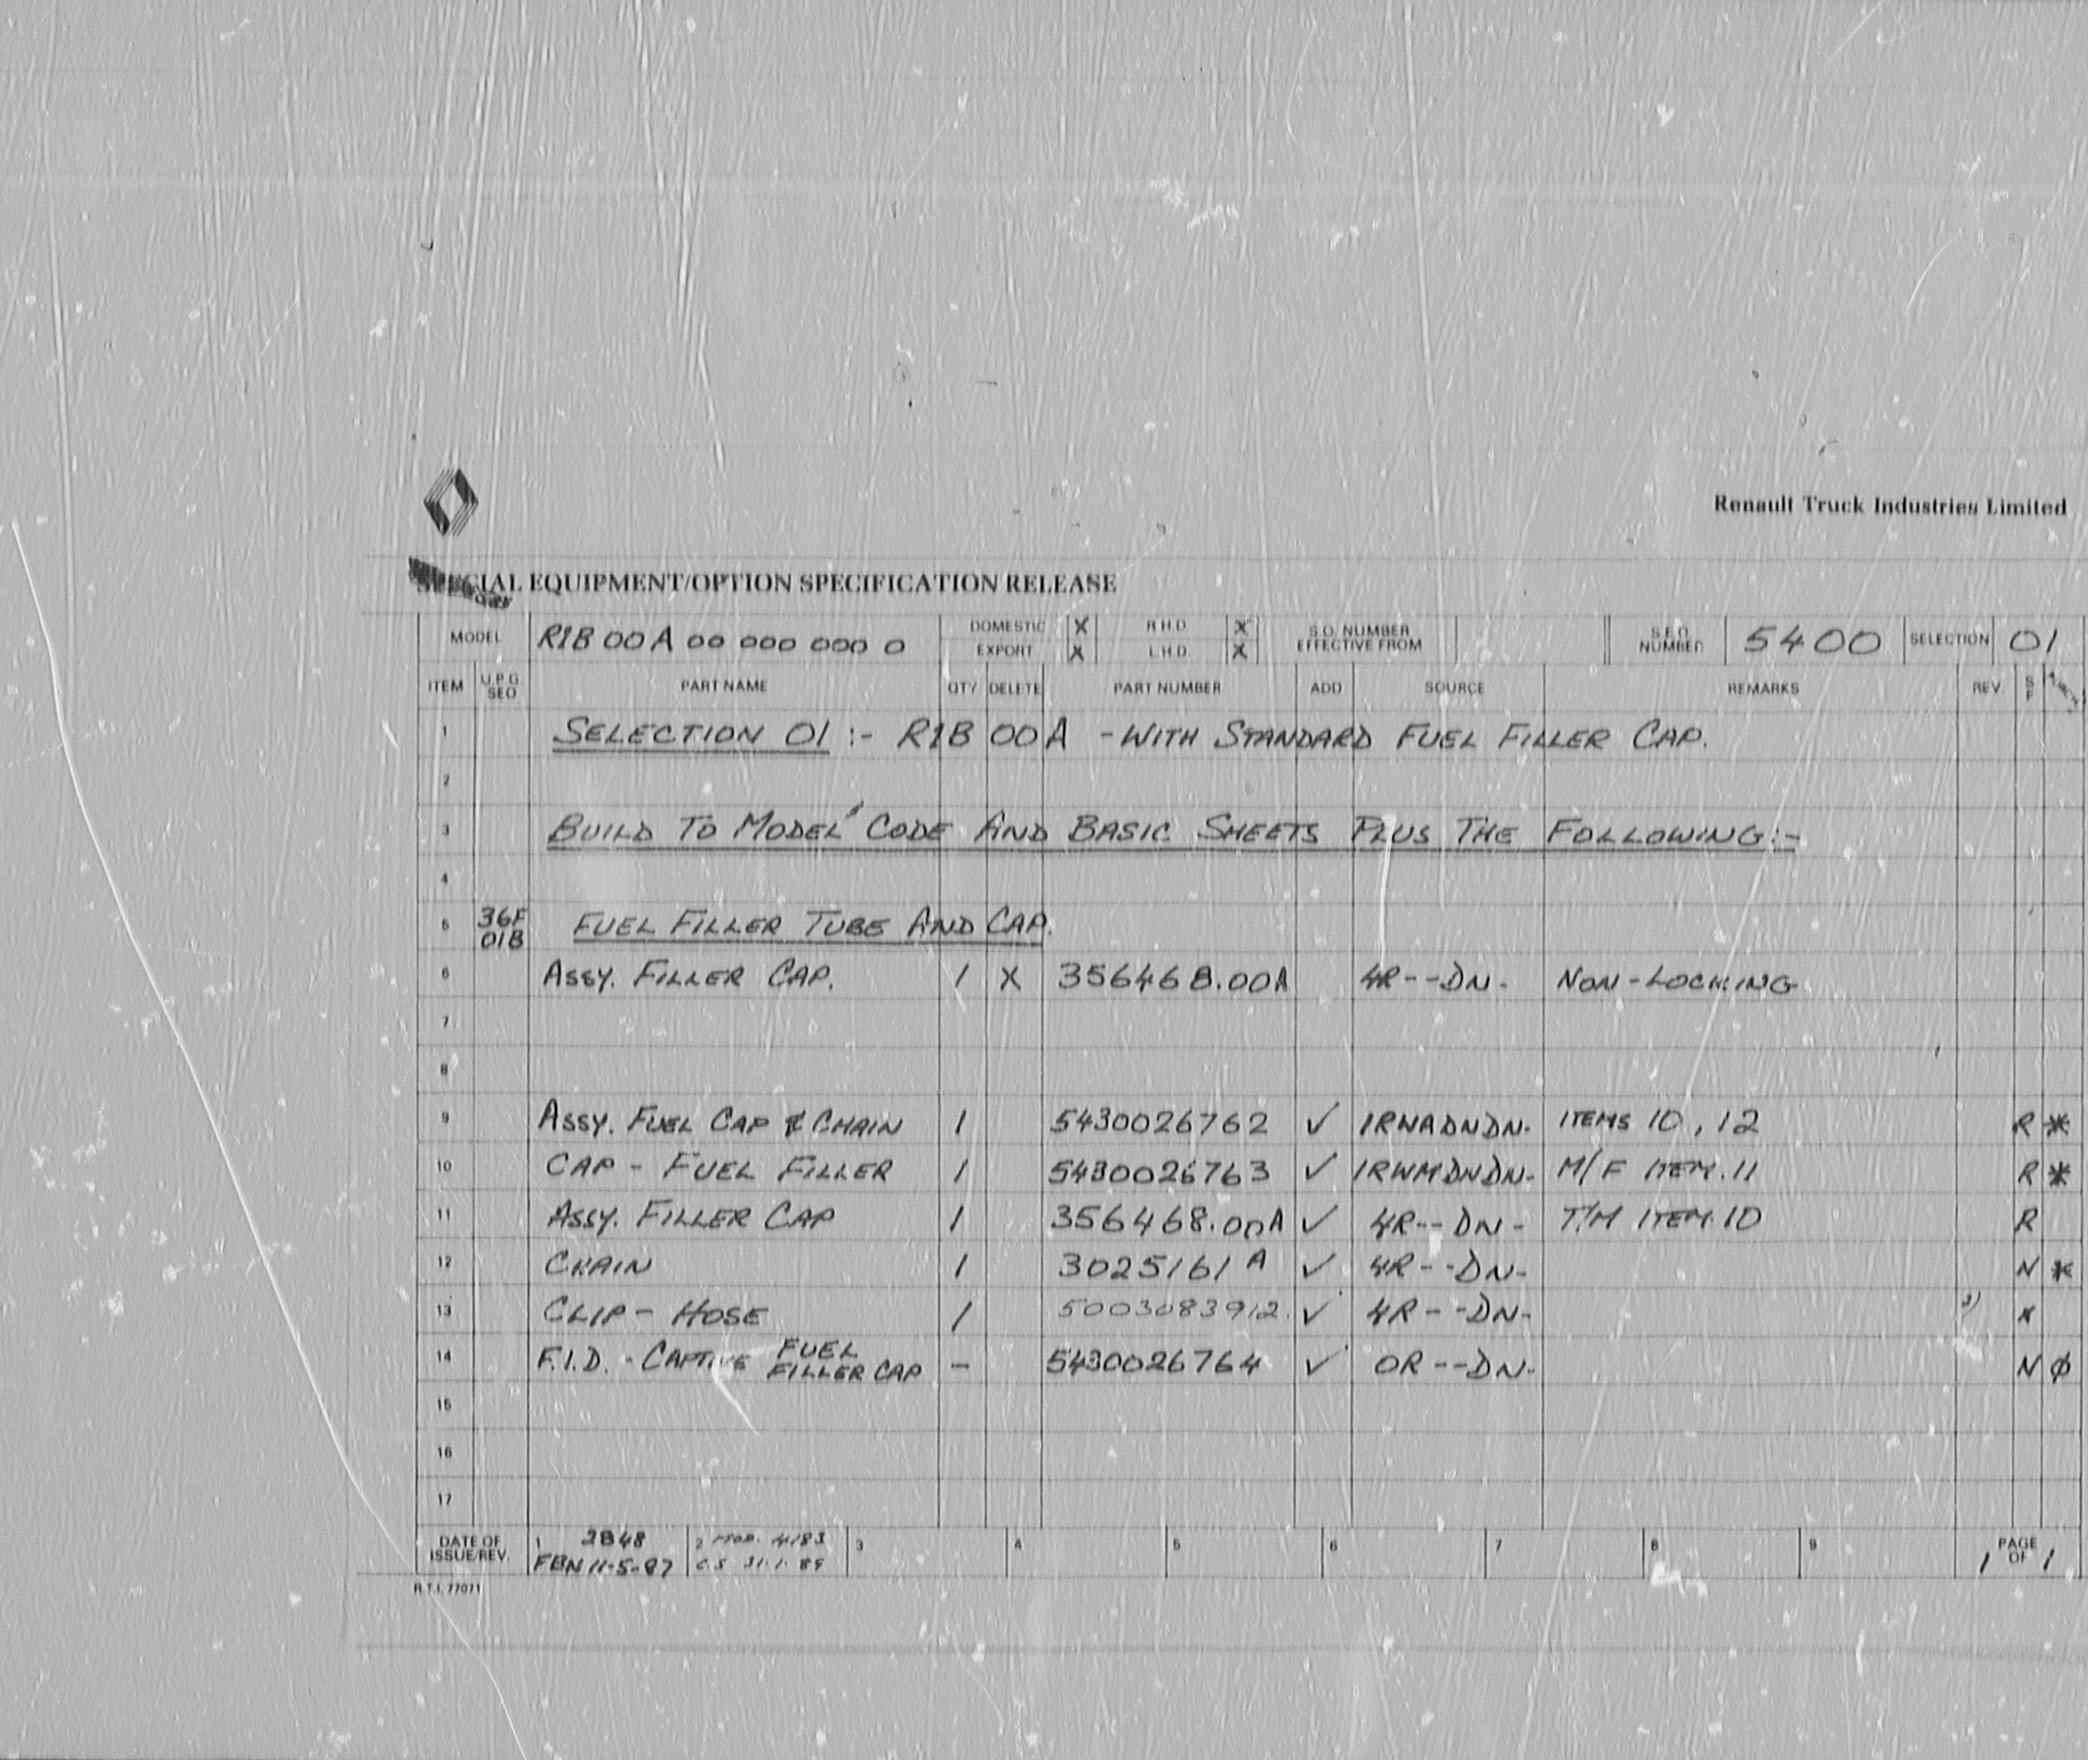 Renault Truck Industries Limited
SPECIAL EQUIPMENT/OPTION SPECIFICATION RELEASE
MODEL R1B 00A 00 000 000 0 DOMESTIC X R.H.D. X S.O. NUMBER EFFECTIVE FROM S.E.O. NUMBER 5400 SELECTION 01
EXPORT X L.H.D. X
ITEM U.P.G. SEQ PART NAME QTY DELETE PART NUMBER ADD SOURCE REMARKS REV. S F
1 SELECTION 01 :- R1B 00A - WITH STANDARD FUEL FILLER CAP.
2
3 BUILD TO MODEL CODE AND BASIC SHEETS PLUS THE FOLLOWING:-
4
5 36F 01B FUEL FILLER TUBE AND CAP.
6 ASSY. FILLER CAP. 1 X 356468.00A 4R--DN- NON-LOCKING
7
8
9 ASSY. FUEL CAP & CHAIN 1 5430026762 ✓ 1RNADNDN- ITEMS 10, 12 R *
10 CAP - FUEL FILLER 1 5430026763 ✓ 1RWMDNDN- M/F ITEM.11 R *
11 ASSY. FILLER CAP 1 356468.00A ✓ 4R--DN- T/M ITEM.10 R
12 CHAIN 1 3025161A ✓ 4R--DN- N *
13 CLIP - HOSE 1 5003083912. ✓ 4R--DN- 2) x
14 F.I.D. - CAPTIVE FUEL FILLER CAP - 5430026764 ✓ OR--DN- N ϕ
15
16
17
DATE OF ISSUE/REV. 1 2B48 2 MOD. 4183 3 4 5 6 7 8 9 1 PAGE OF 1
FBN 11-5-87 C.S 31.1.89
R.T.I. 77071